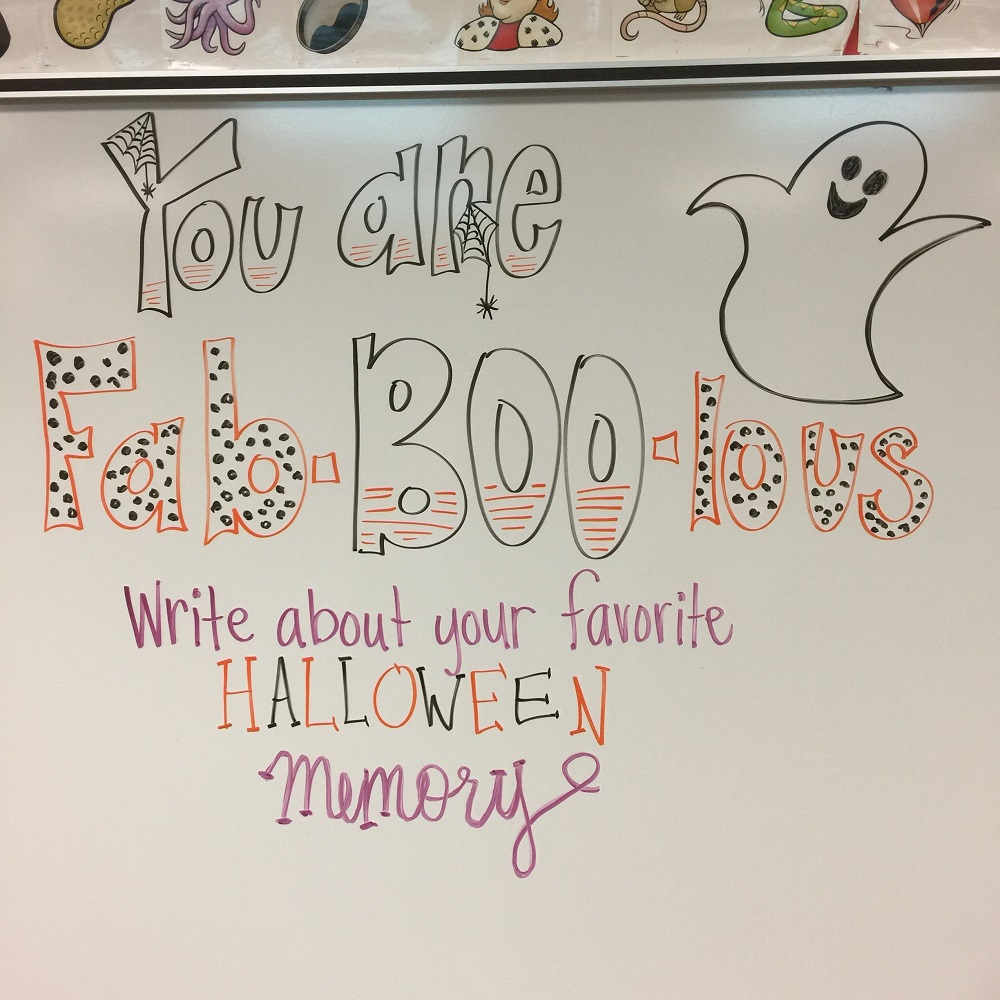 You are
Fab-BOO-lous
Write about your favorite
HALLOWEEN
Memory